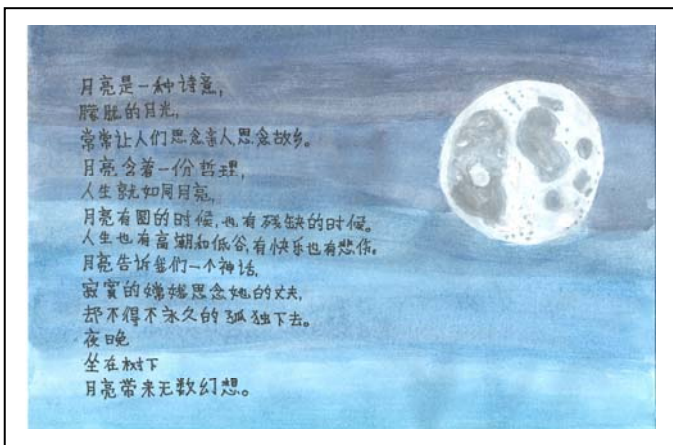 月亮是一种诗意,
朦胧的月光,
常常让人们思念亲人思念故乡。
月亮含着一份哲理,
人生就如同月亮,
月亮有圆的时候,也有残缺的时候。
人生也有高潮和低谷,有快乐也有悲伤。
月亮告诉我们一个神话,
寂寞的嫦娥思念她的丈夫,
却不得不永久的孤独下去。
夜晚
坐在树下
月亮带来无数幻想。